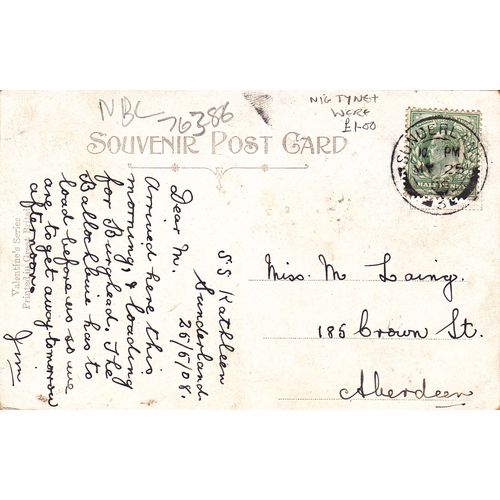 NBL
76386
NIG TYNE +
WERE
£1-00
SOUVENIR POST CARD
SUNDERLAND
PM
25
HALFPENNY
S S Kathleen
Sunderland.
25/5/08.
Dear M.
Arrived here this
morning, & loading
for Burghead. The
Ballochbuie has to
load before us so we
are to get away tomorrow
afternoon.
Jim
Miss. M Laing.
185 Crown St.
Aberdeen
Valentine's Series
Printed in Great Britain